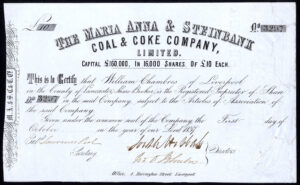 THE MARIA ANNA & STEINBANK
COAL & COKE COMPANY,
LIMITED.
CAPITAL £160,000, IN 16,000 SHARES OF £10 EACH.
This is to Certify that William Chambers of Liverpool
in the County of Lancaster Share Broker, is the Registered Proprietor of Share
No 3257 in the said Company, subject to the Articles of Association of
the said Company.
Given under the common seal of the Company the First day of
October in the year of our Lord
Secretary
Directors
Liverpool